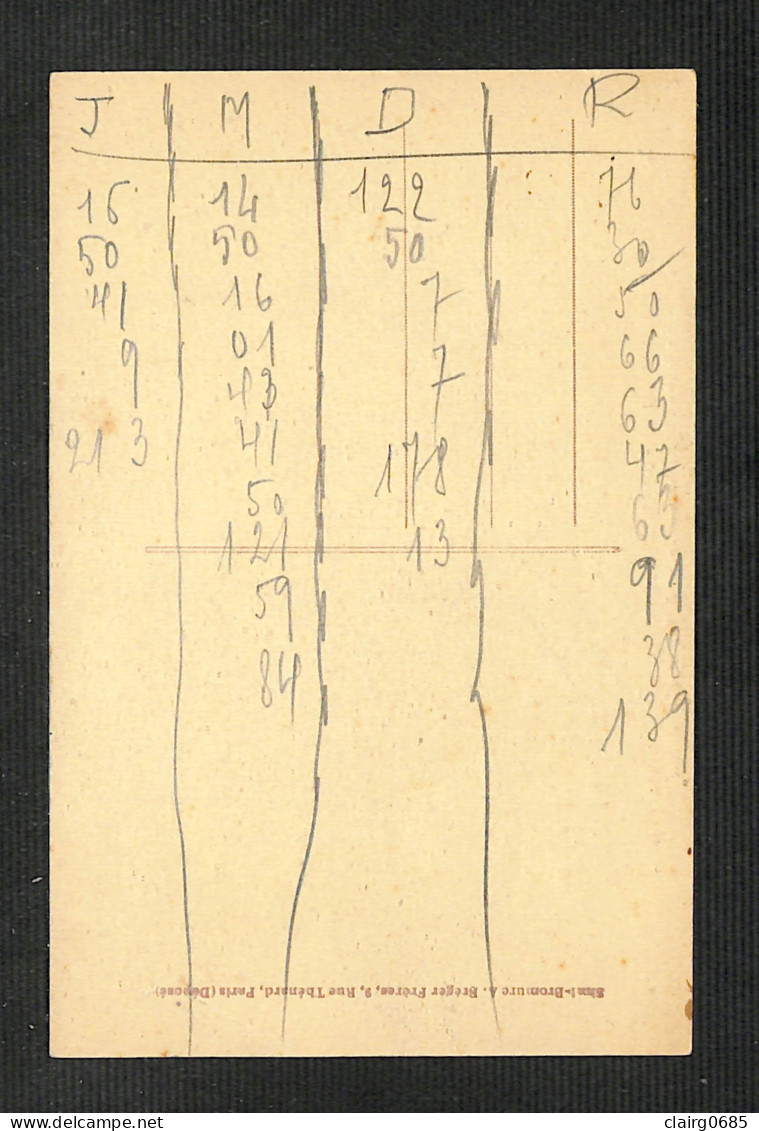 J M D R
16 14 122 76
50 50 50 30
41 16 7 50
9 01 7 66
213 43 178 63
41 13 47
50 63
121 91
59 38
84 139
Simi-Bromure A. Breger Frères, 9, Rue Thénard, Paris (Déposé)
clairg0685